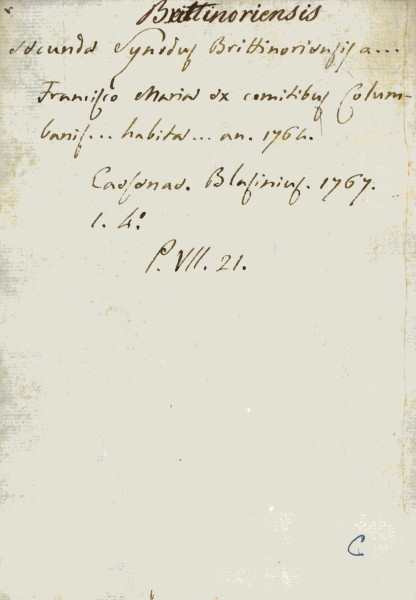 Brittinoriensis
secunda Synodus Brittinoriensis a...
Francisco Maria ex comitibus Colum-
banis... habita... an. 1764.
Caesenae. Blasinius. 1767.
1. 4.º
P. VII. 21.
C